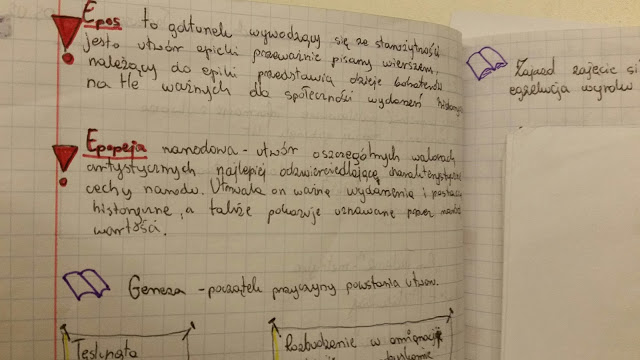 Epos to gatunek wywodzący się ze starożytności
jest utwór epicki przeważnie pisany wierszem,
należący do epiki przedstawia dzieje bohaterów
na tle ważnych dla społeczności wydarzeń
Epopeja narodowa - utwór o szczególnych walorach
artystycznych najlepiej odzwierciedlające charakterystyczne
cechy narodu. Utrwala on ważne wydarzenia i postacie
historyczne, a także pokazuje uznawane przez naród
wartości.
Geneza - początek przyczyny powstania utworu.
Tęsknota
Rozbudzenie w emigracji
Zajazd zajęcie si
egzekucja wyroku